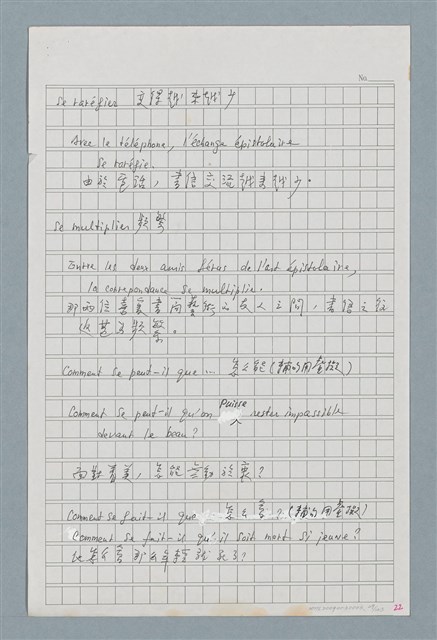 No.
Se raréfier 變得越來越少
Avec le téléphone, l'échange épistolaire
se raréfie.
由於電話，書信交流越來越少。
Se multiplier 頻繁
Entre les deux amis férus de l'art épistolaire,
la correpondance se multiplie.
那兩位喜愛書簡藝術的友人之間，書信之往
返甚為頻繁。
Comment se peut-il que ... 怎么能(輔的用虛擬)
Comment se peut-il qu'on puisse rester impassible
devant le beau?
面對着美，怎能無動於衷？
Comment se fait-il que 怎么會？(輔的用虛擬)
Comment se fait-il qu'il soit mort si jeune?
他怎么會那么年輕就死了？
22